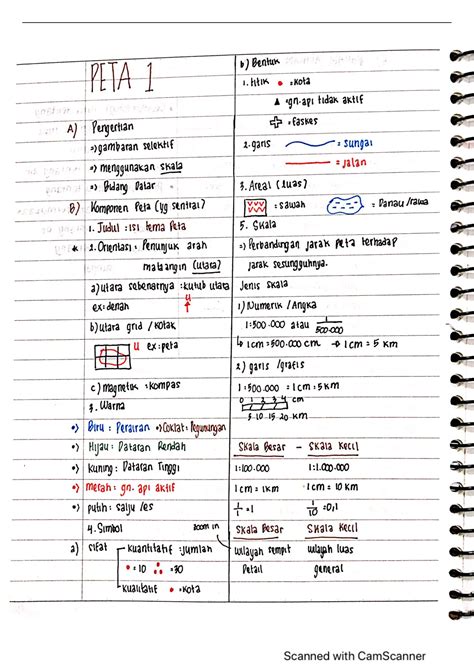 PETA 1
A) Pengertian
=> gambaran selektif
=> menggunakan skala
=> Bidang Datar
B) Komponen Peta (yg sentral?)
1. Judul : isi tema Peta
* 2. Orientasi : Penunjuk arah
mata angin (utara)
a) utara sebenarnya : kutub utara
ex: denah U ↑
b) utara grid / kotak
U ex: peta
c) magnetuk : kompas
3. Warna
•) Biru : Perairan •) Coklat : Pegunungan
•) Hijau : Dataran Rendah
•) kuning : Dataran Tinggi
•) merah : gn. api aktif
•) putih : salju /es
4. Simbol
a) sifat
kuantitatif : jumlah
• = 10 ∴ = 30
kualitatif • = kota
b) Bentuk
1. titik • = kota
▲ = gn. api tidak aktif
= faskes
2. garis = sungai
= jalan
3. Areal (luas)
= sawah = Danau /rawa
5. Skala
=> Perbandingan jarak peta terhadap
jarak sesungguhnya.
Jenis skala
1) Numerik / Angka
1:500.000 atau 1/500.000
↳ 1 cm = 500.000 cm → 1 cm = 5 km
2) garis /grafis
1:500.000 = 1 cm = 5 km
0 1 2 3 4
5 10 15 20 km
Skala Besar - Skala Kecil
1:100.000 1:1.000.000
1 cm = 1km 1 cm = 10 km
1/1 = 1 1/10 = 0,1
zoom in
Skala Besar Skala Kecil
wilayah sempit wilayah luas
Detail general
Scanned with CamScanner